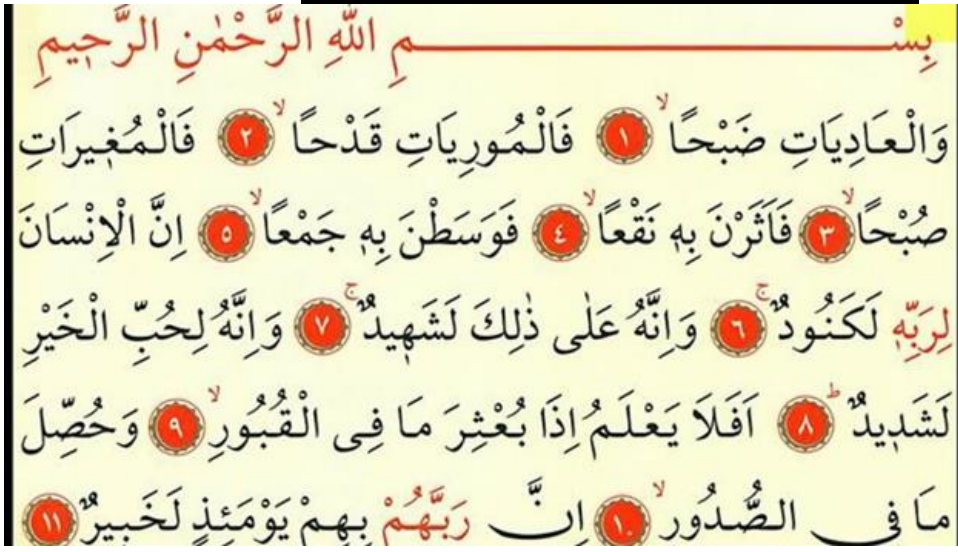 بِسْمِ اللّٰهِ الرَّحْمٰنِ الرَّحٖيمِ
وَالْعَادِيَاتِ ضَبْحًاۙ ١ فَالْمُورِيَاتِ قَدْحًاۙ ٢ فَالْمُغٖيرَاتِ
صُبْحًاۙ ٣ فَاَثَرْنَ بِهٖ نَقْعًاۙ ٤ فَوَسَطْنَ بِهٖ جَمْعًاۙ ٥ اِنَّ الْاِنْسَانَ
لِرَبِّهٖ لَكَنُودٌۚ ٦ وَاِنَّهُ عَلٰى ذٰلِكَ لَشَهٖيدٌۚ ٧ وَاِنَّهُ لِحُبِّ الْخَيْرِ
لَشَدٖيدٌؕ ٨ اَفَلَا يَعْلَمُ اِذَا بُعْثِرَ مَا فِى الْقُبُورِۙ ٩ وَحُصِّلَ
مَا فِى الصُّدُورِۙ ١٠ اِنَّ رَبَّهُمْ بِهِمْ يَوْمَئِذٍ لَخَبٖيرٌ ١١